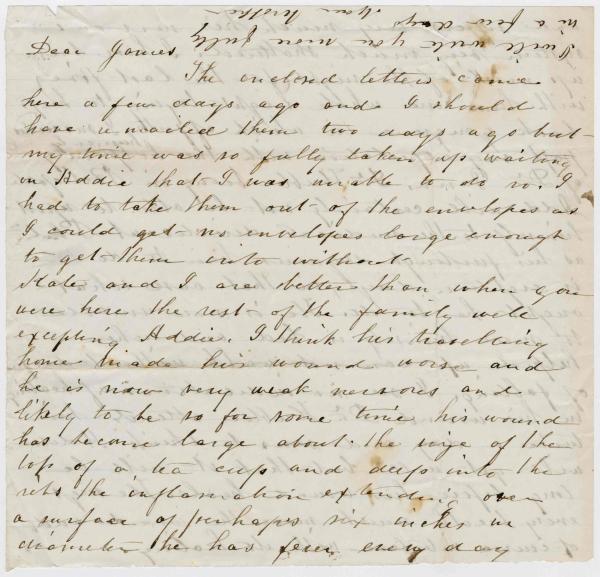 Dear James,
The enclosed letters came
here a few days ago and I should
have remailed them two days ago but
my time was so fully taken up waiting
on Addie that I was unable to do so. I
had to take them out of the envelopes as
I could get no envelopes large enough
to get them into without
Kate and I are better than when you
were here the rest of the family well
excepting Addie. I think his travelling
home made his wound worse and
he is now very weak nervous and
likely to be so for some time his wound
has become large about the size of the
top of a tea cup and deep into the
ribs the inflamation extending over
a surface of perhapes six inches in
diameter he has fever every day
I will write you more fully
in a few days
Your brother